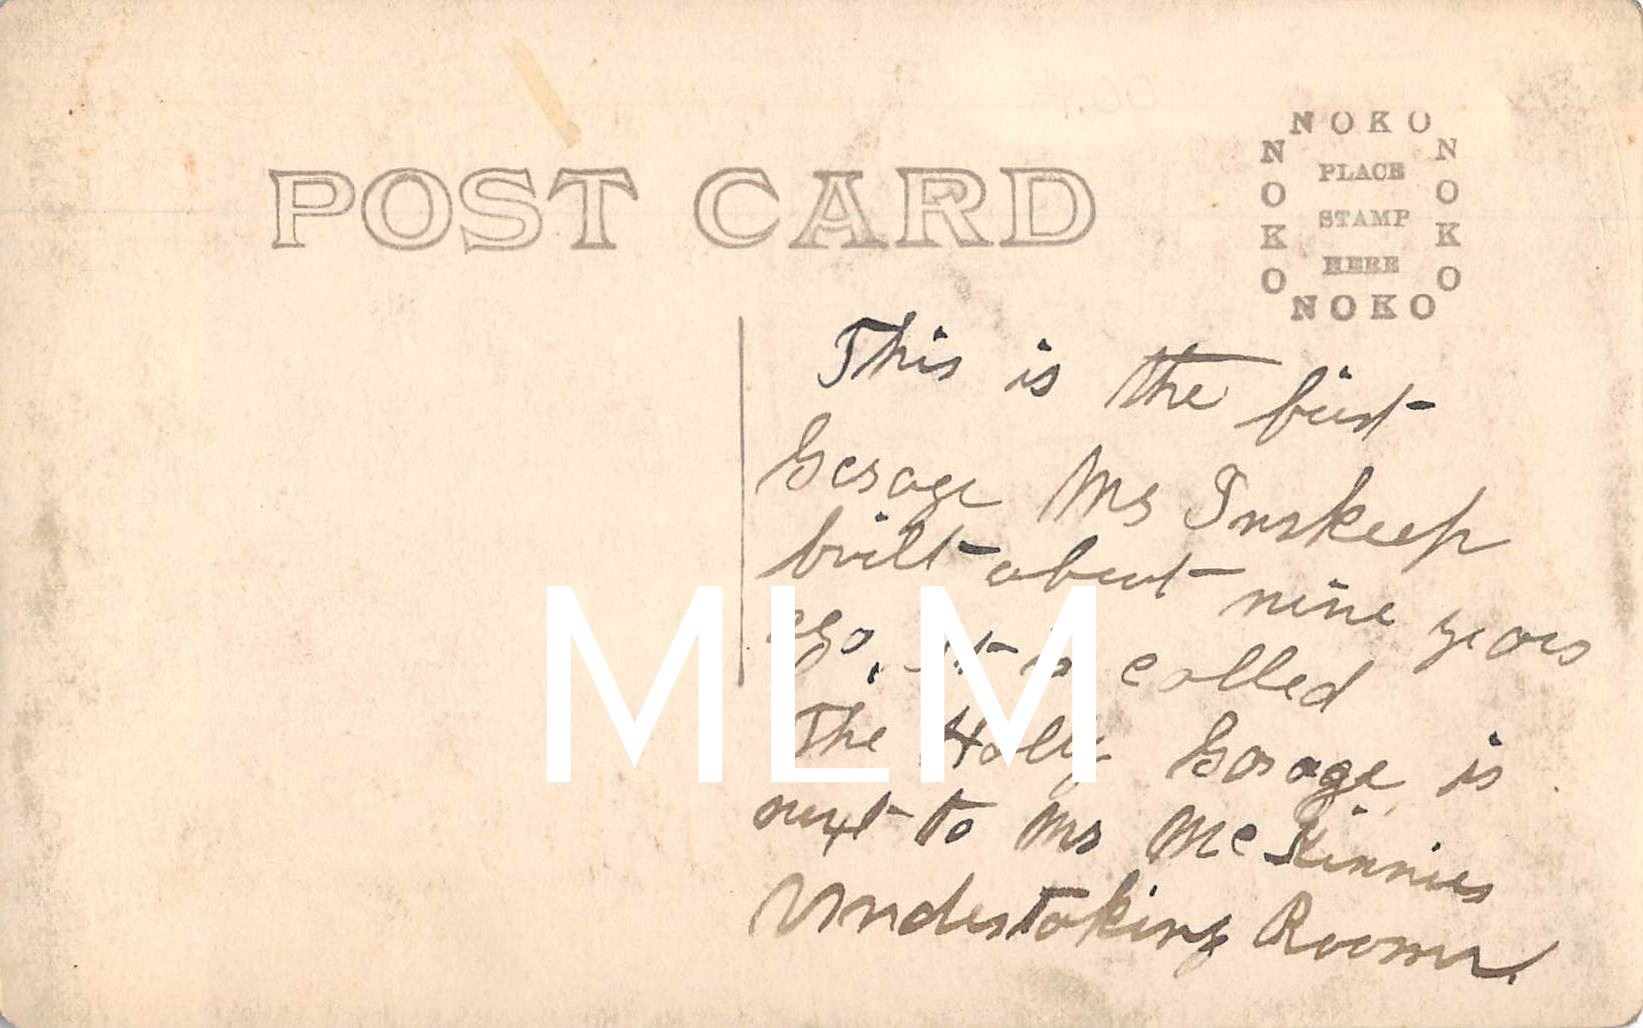 POST CARD
NOKO
NOKO
NOKO
PLACE
STAMP
HERE
NOKO
This is the first
Garage Mr Inskeep
built about nine years
ago. It is called
The Holly Garage is
next to Mr McKinnies
Undertaking Rooms.
MLM